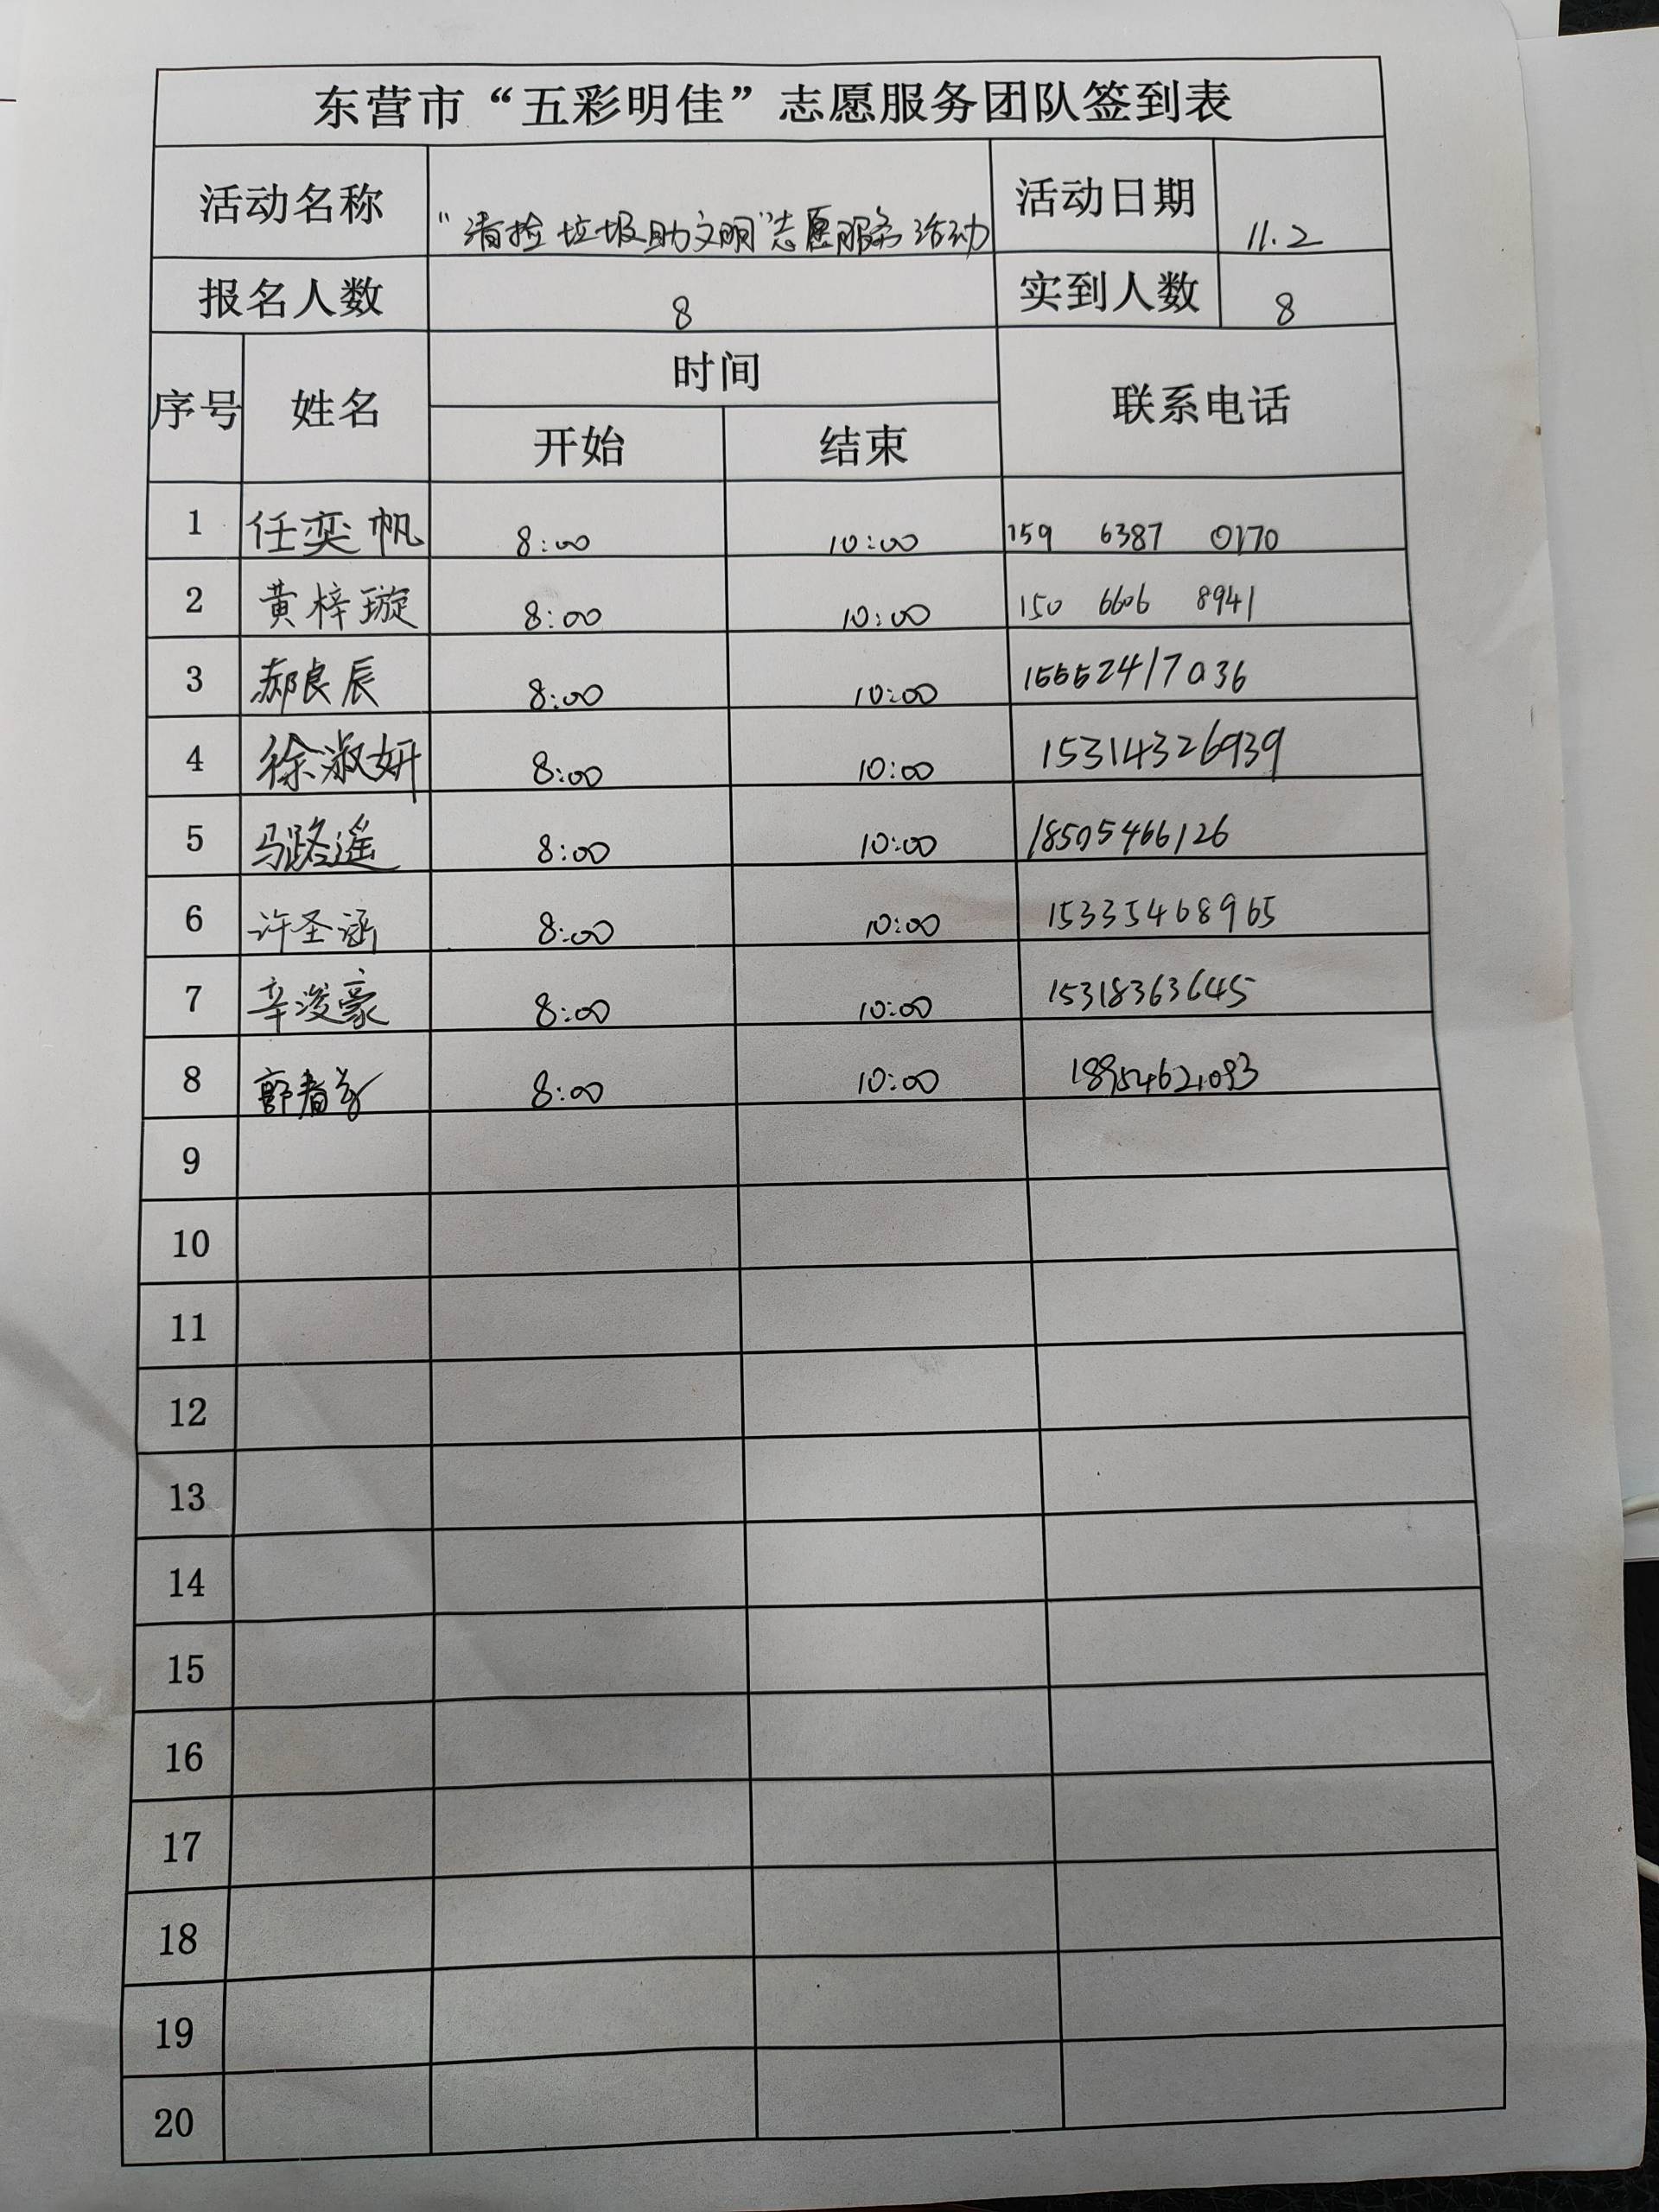 东营市“五彩明佳”志愿服务团队签到表
活动名称 “清捡垃圾助文明”志愿服务活动 活动日期 11.2
报名人数 8 实到人数 8
序号 姓名 时间 联系电话
开始 结束
1 任奕帆 8:00 10:00 159 6387 0170
2 黄梓璇 8:00 10:00 150 6606 8941
3 郝良辰 8:00 10:00 15552417036
4 徐淑妍 8:00 10:00 15314326939
5 马路遥 8:00 10:00 18505466126
6 许圣涵 8:00 10:00 15335468965
7 辛浚豪 8:00 10:00 15318363645
8 郭 8:00 10:00 18954621093
9
10
11
12
13
14
15
16
17
18
19
20